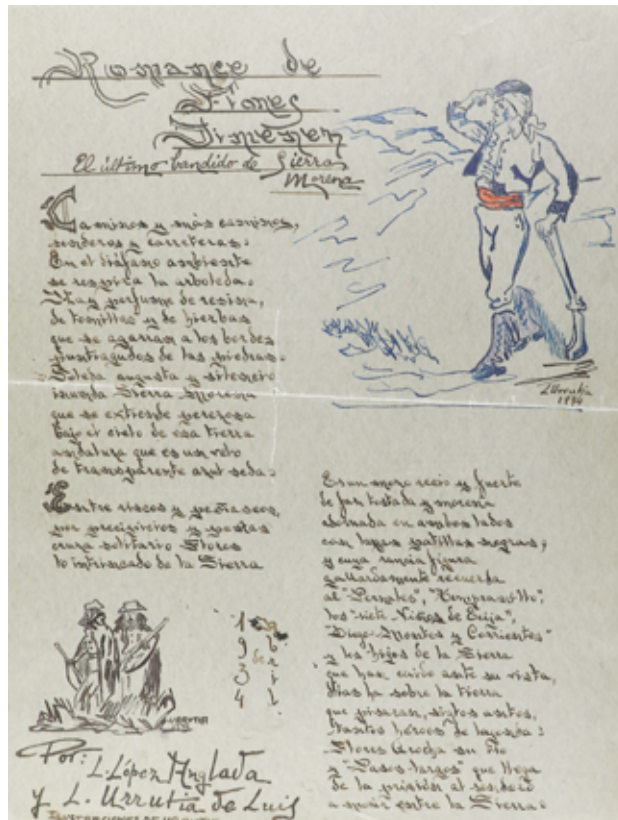 Romance de
Flores
Jiménez
El último bandido de Sierra
Morena
Caminos y más caminos,
senderos y carreteras.
En el diáfano ambiente
se respira la arboleda.
Hay perfume de resina,
de tomillos y de hierbas
que se agarran a los bordes
puntiagudos de las piedras.
augusta y silencio
inunda Sierra Morena
que se extiende perezosa
bajo el cielo de esa tierra
andaluza que es un velo
de transparente azul seda.
Entre riscos y peñascos,
por precipicios y
cruza solitario Flores
lo intrincado de la Sierra
L Urrutia
1934
Es un mozo recio y fuerte
de faz tostada y morena
adornada en ambos lados
con largas patillas negras,
y cuya rancia figura
gallardamente recuerda
al "Pernales", "Tempranillo",
los "siete Niños de Écija",
"Diego Montes y Corrientes"
y los hijos de la Sierra
que han caído ante su vista,
sobre la tierra
que pisaran, siglos antes,
tantos héroes de leyenda:
Flores Arocha su tío
y "Pasos largos" que llega
de la prisión al sendero
a morir entre la Sierra.
URRUTIA
1934
de
abril
Por: L. López Anglada
y L. Urrutia de Luis
ILUSTRACIONES DE URRUTIA